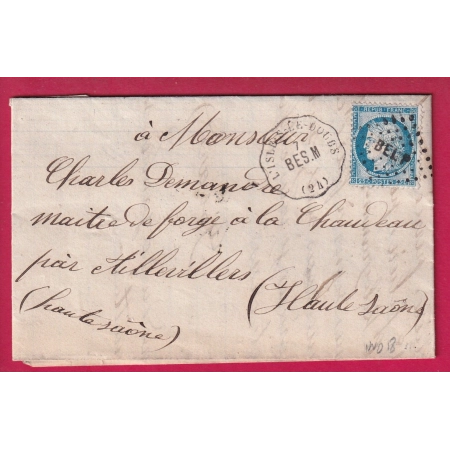 à Monsieur
Charles Demandre
maitre de forge à la Chaudeau
par Aillevillers
(haute saône) (Haute Saône)
L'ISLE-S-LE-DOUBS
BES.M
(24)
REPUB. FRANC.
POSTES
BELF
IND 18